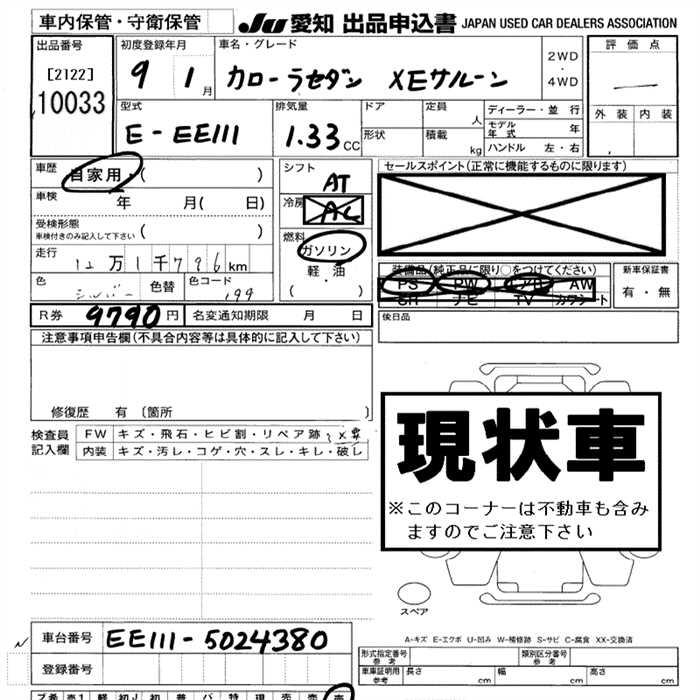 車内保管・守衛保管
JU 愛知 出品申込書 JAPAN USED CAR DEALERS ASSOCIATION
出品番号 初度登録年月 車名・グレード 評価点
[2122] 9 1月 カローラセダン XEサルーン 2WD・4WD
10033
型式 排気量 ドア 定員 人 ディーラー・並行 外装 内装
E-EE111 1.33CC 形状 積載 kg モデル年式 年
ハンドル 左・右
車歴 自家用・( ) シフト AT セールスポイント(正常に機能するものに限ります)
車検 年 月( 日) 冷房 AC
受検形態
車検付きのみ記入して下さい ( ) 燃料 ガソリン
走行 12万1千796km 軽・油 装備品(純正品に限り○をつけてください) 新車保証書
色 シルバー 色替 色コード 199 ( ・ ) PS PW AW 有・無
SR ナビ TV カワシート
R券 9790円 名変通知期限 月 日 後日品
注意事項申告欄(不具合内容等は具体的に記入して下さい)
修復歴 有〔箇所 〕
検査員 FW キズ・飛石・ヒビ割・リペア跡
記入欄 内装 キズ・汚レ・コゲ・穴・スレ・キレ・破レ
現状車
※このコーナーは不動車も含み
ますのでご注意下さい
スペア
車台番号 EE111-5024380 A-キズ E-エクボ U-凹み W-補修跡 S-サビ C-腐食 XX-交換済
登録番号 形式指定番号 参考 類別区分番号 参考
車庫証明用 参考 長さ cm 幅 cm 高さ cm